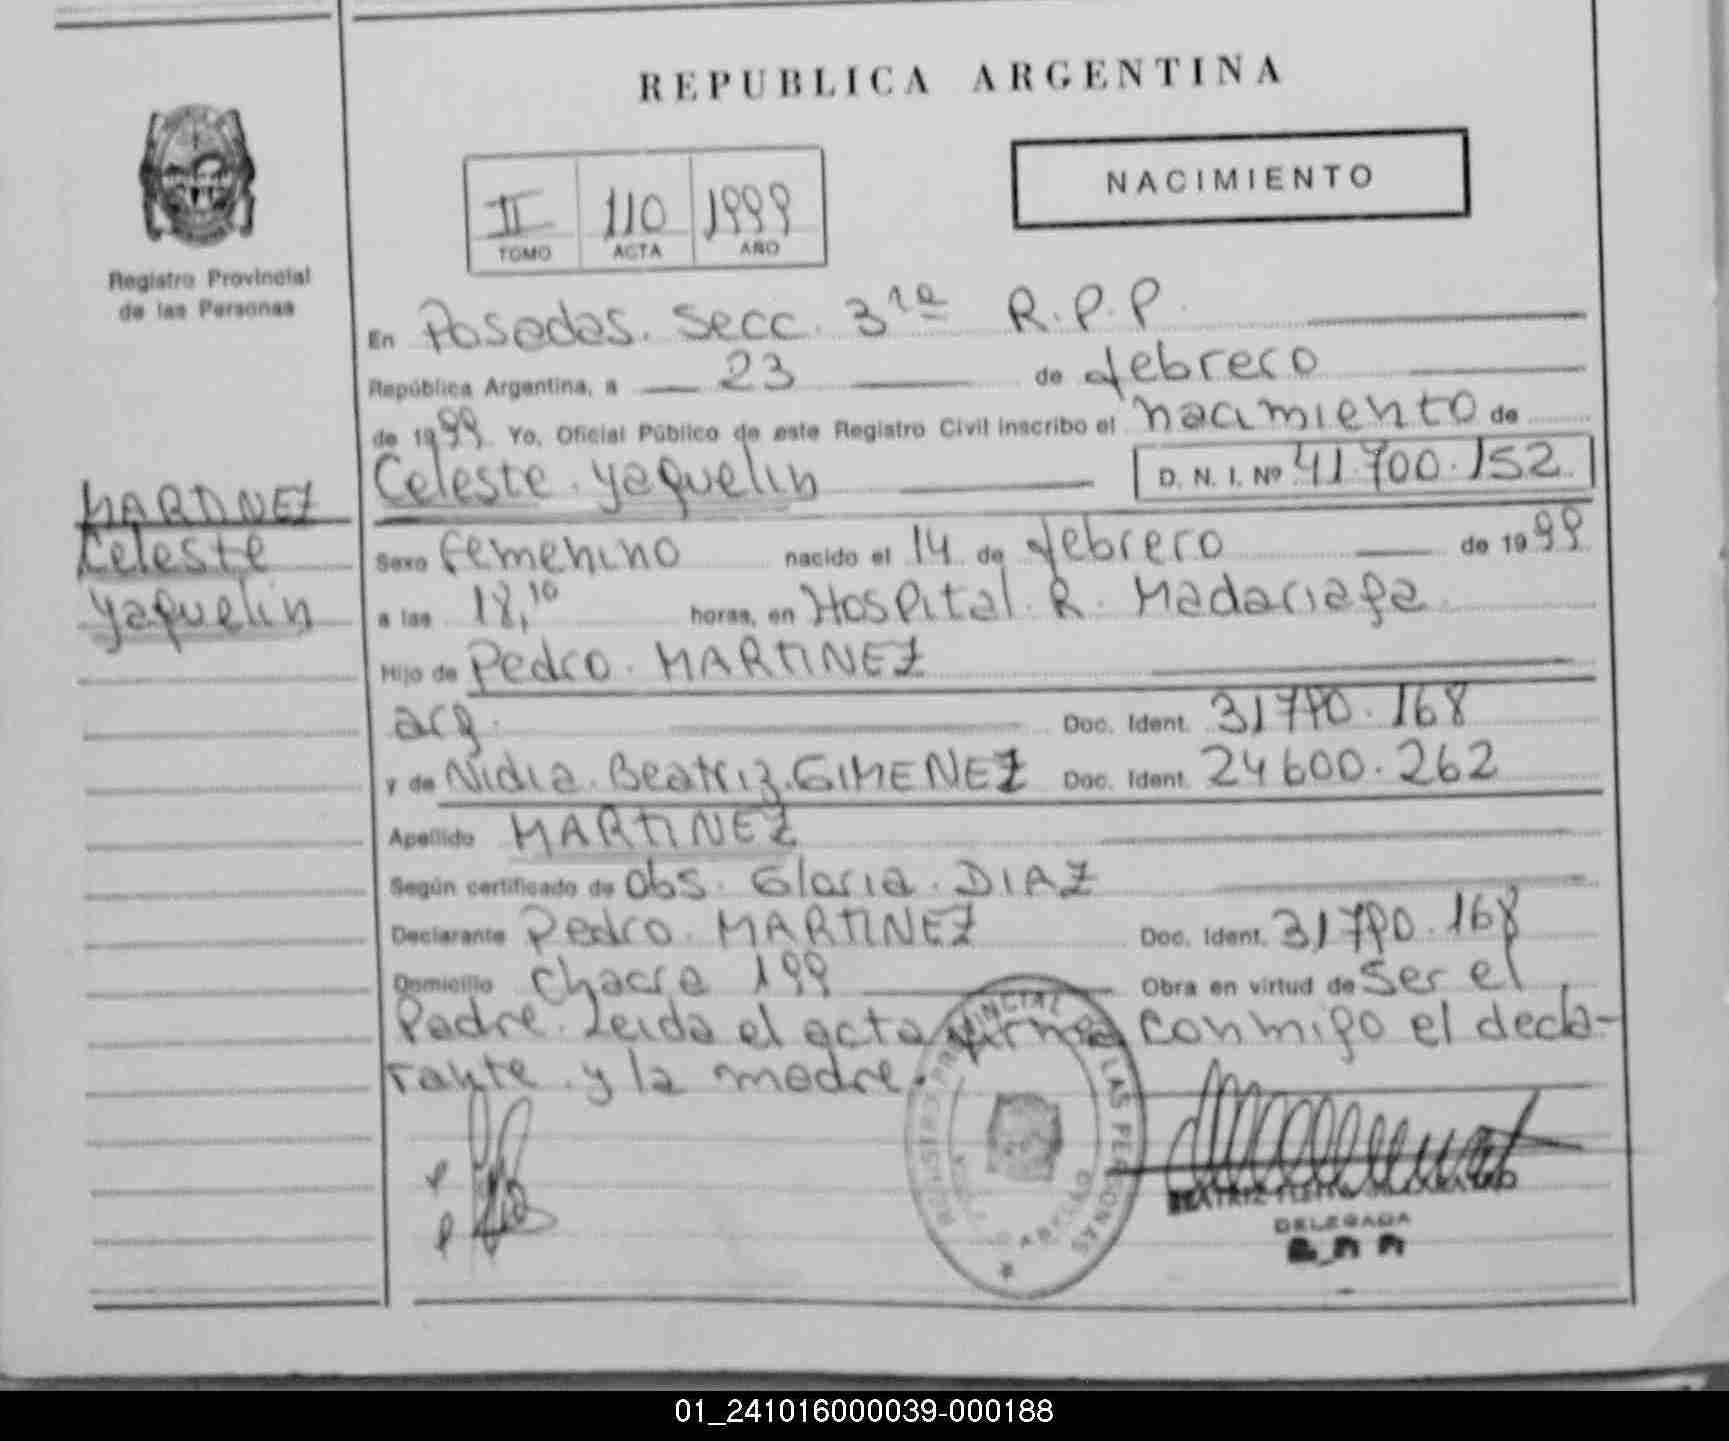 REPUBLICA ARGENTINA
NACIMIENTO
II 110 1999
TOMO ACTA AÑO
Registro Provincial
de las Personas
En Posadas. Secc. 3ra R.P.P.
República Argentina, a 23 de febrero
de 1999 Yo, Oficial Público de este Registro Civil inscribo el nacimiento de
Celeste. Yaquelin D. N. I. Nº 41.700.152
MARTINEZ
Celeste
Yaquelin
Sexo femenino nacido el 14 de febrero de 1999
a las 18,10 horas, en Hospital. R. Madariaga
Hijo de Pedro. MARTINEZ
arg. Doc. Ident. 31790.168
y de Nidia. Beatriz. GIMENEZ Doc. Ident. 24600.262
Apellido MARTINEZ
Según certificado de Obs. Gloria. DIAZ
Declarante Pedro. MARTINEZ Doc. Ident. 31790.168
Domicilio Chacra 199 Obra en virtud de ser el
Padre. Leida el acta firma conmigo el decla-
rante. y la madre.
REGISTRO PROVINCIAL DE LAS PERSONAS
BEATRIZ
DELEGADA
01_241016000039-000188